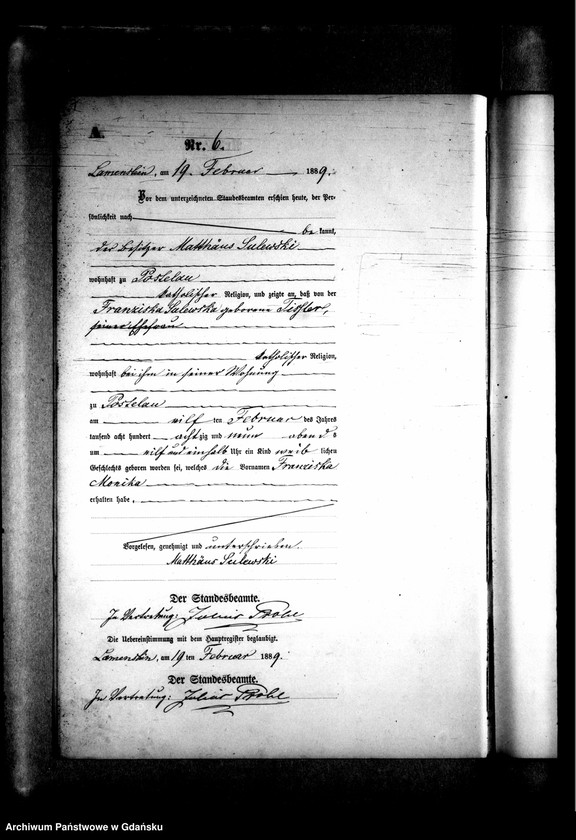 A.
Nr. 6.
Lamenstein, am 19. Februar 1889.
Vor dem unterzeichneten Standesbeamten erschien heute, der Per-
sönlichkeit nach
be kannt,
der Besitzer Matthäus Sulewski
wohnhaft zu Postelau
katholischer Religion, und zeigte an, daß von der
Franziska Sulewska geborene Tischler,
seiner Ehefrau
katholischer Religion,
wohnhaft bei ihm in seiner Wohnung
zu Postelau
am eilf ten Februar des Jahres
tausend acht hundert achtzig und neun abends
um eilf und einhalb Uhr ein Kind weib lichen
Geschlechts geboren worden sei, welches die Vornamen Franziska
Monika
erhalten habe.
Vorgelesen, genehmigt und unterschrieben.
Matthäus Sulewski
Der Standesbeamte.
In Vertretung: Julius
Die Uebereinstimmung mit dem Hauptregister beglaubigt.
Lamenstein, am 19 ten Februar 1889.
Der Standesbeamte.
In Vertretung: Julius
Archiwum Państwowe w Gdańsku